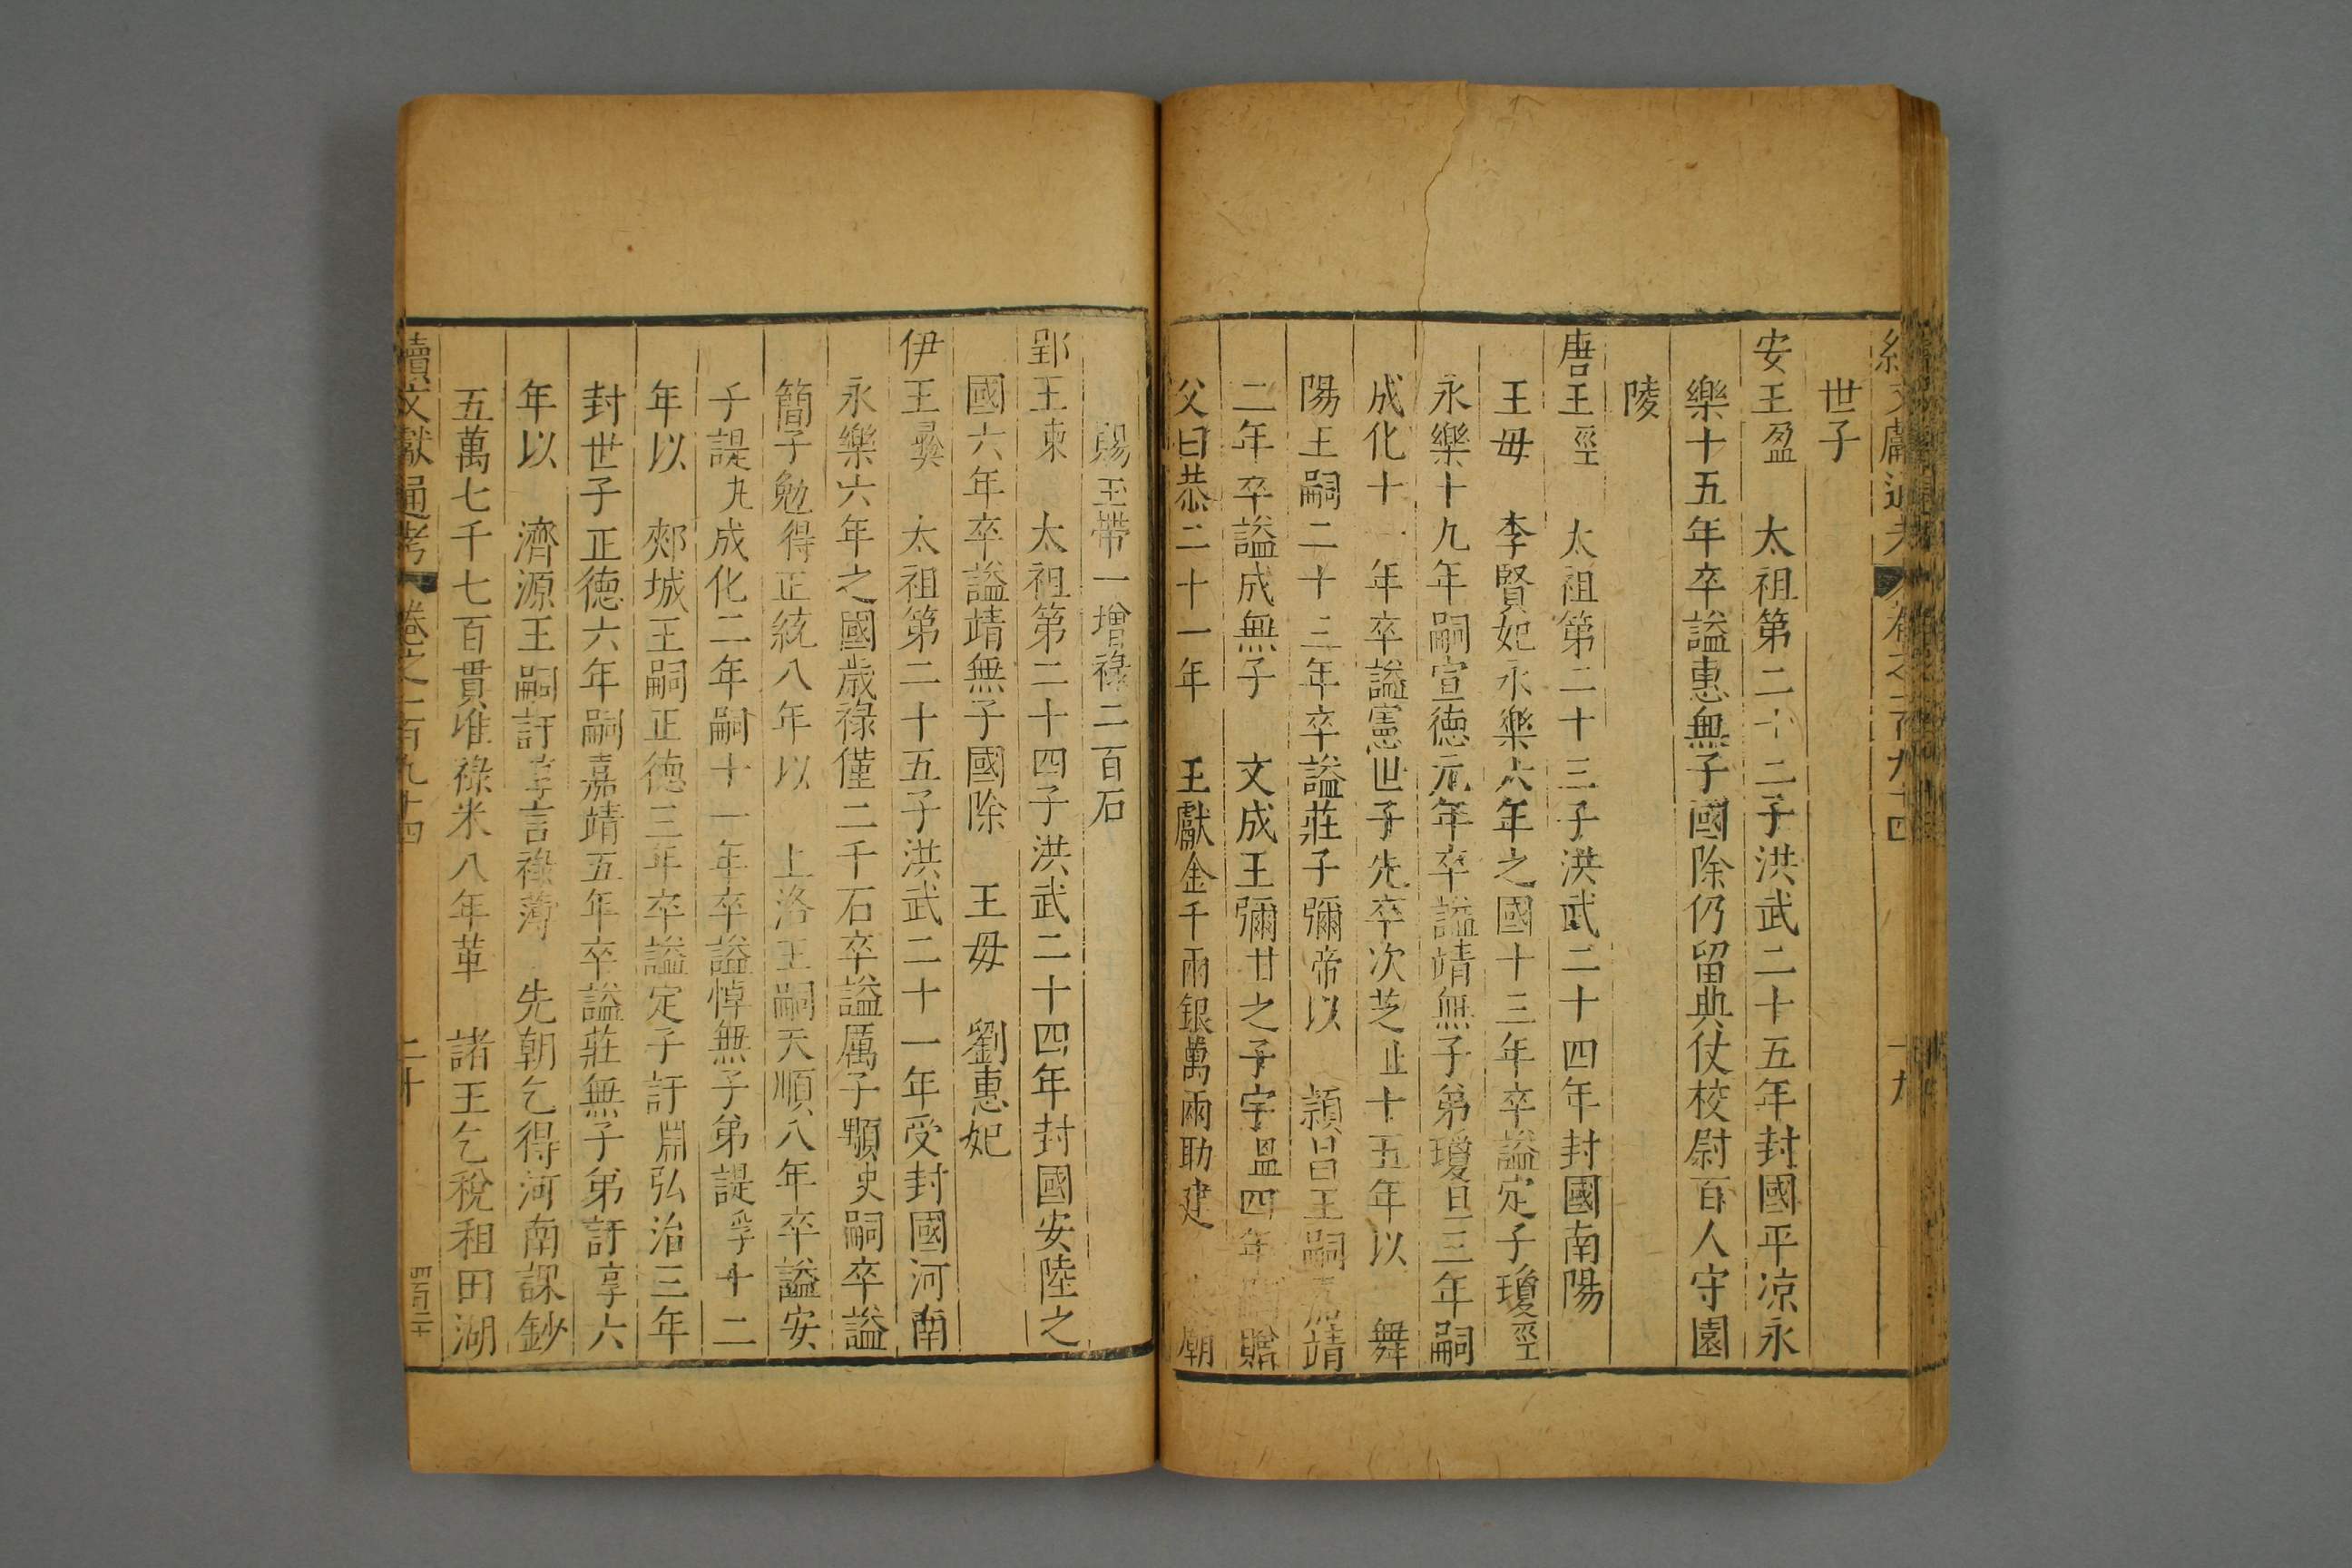 世子
安王盈　太祖第二十二子洪武二十五年封國平凉永
樂十五年卒謚惠無子國除仍留典仗校尉百人守園
陵
唐王桱　太祖第二十三子洪武二十四年封國南陽
王毋　李賢妃永樂六年之國十三年卒謚定子瓊桱
永樂十九年嗣宣徳元年卒謚靖無子弟瓊旦三年嗣
成化十一年卒謚憲世子先卒次芝址十五年以　舞
陽王嗣二十三年卒謚莊子彌帝以　頴昌王嗣嘉靖
二年卒謚成無子　文成王彌廿之子宇溫四年嗣贈
父曰恭二十一年　王獻金千兩銀萬兩助建　太廟
賜玉帶一增祿二百石
郢王東　太祖第二十四子洪武二十四年封國安陸之
國六年卒謚靖無子國除　王毋　劉惠妃
伊王彝　太祖第二十五子洪武二十一年受封國河南
永樂六年之國歲祿僅二千石卒謚厲子顒史嗣卒謚
簡子勉得正統八年以　上洛王嗣天順八年卒謚安
子諟九成化二年嗣十一年卒謚悼無子弟諟孚十二
年以　郟城王嗣正徳三年卒謚定子訏淵弘治三年
封世子正徳六年嗣嘉靖五年卒謚莊無子弟訏享六
年以　濟源王嗣訏享言祿薄　先朝乞得河南課鈔
五萬七千七百貫准祿米八年革　諸王乞稅租田湖
續文獻通考　卷之一百九十四　二十